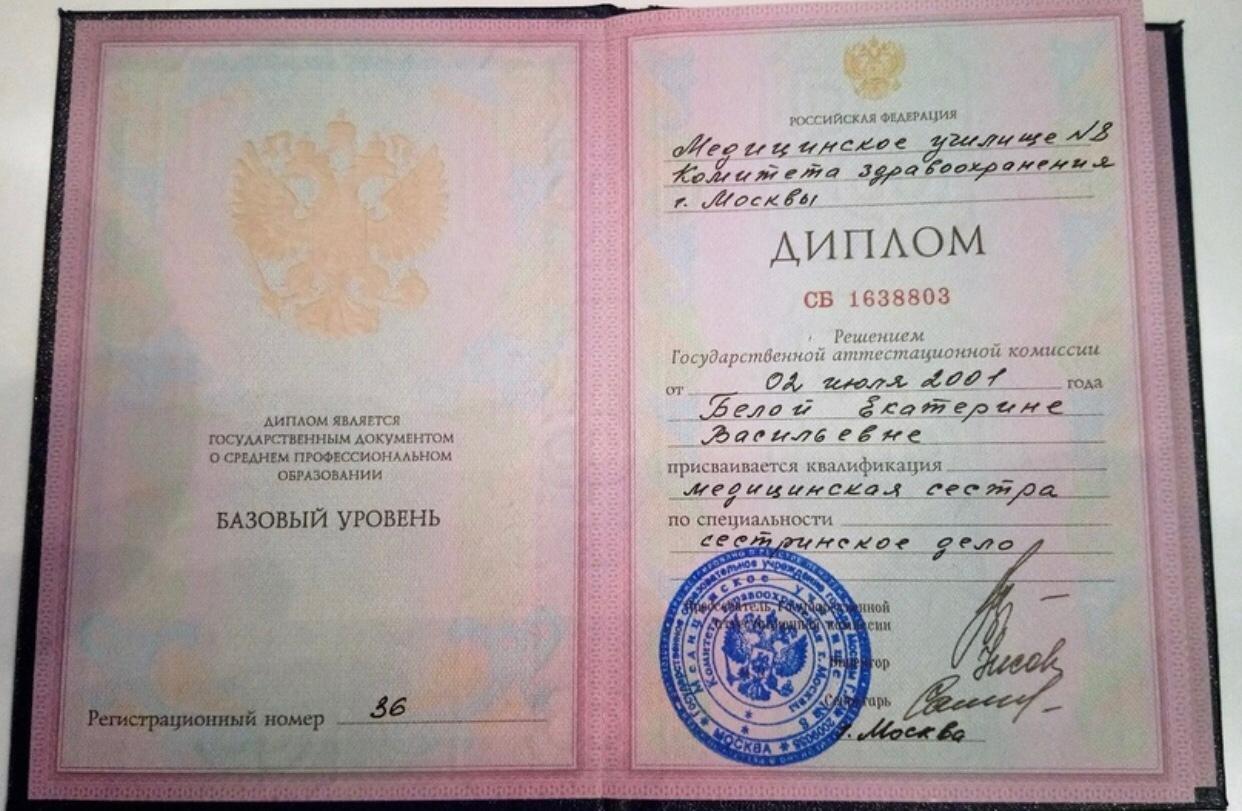 ДИПЛОМ ЯВЛЯЕТСЯ
ГОСУДАРСТВЕННЫМ ДОКУМЕНТОМ
О СРЕДНЕМ ПРОФЕССИОНАЛЬНОМ
ОБРАЗОВАНИИ
БАЗОВЫЙ УРОВЕНЬ
Регистрационный номер 36
РОССИЙСКАЯ ФЕДЕРАЦИЯ
Медицинское училище №8
Комитета здравоохранения
г. Москвы
ДИПЛОМ
СБ 1638803
Решением
Государственной аттестационной комиссии
от 02 июля 2001 года
Белой Екатерине
Васильевне
присваивается квалификация
медицинская сестра
по специальности
сестринское дело
Председатель Государственной
аттестационной комиссии
Директор
Секретарь
г. Москва
Медицинское училище № 8
Комитета здравоохранения г. Москвы
МОСКВА